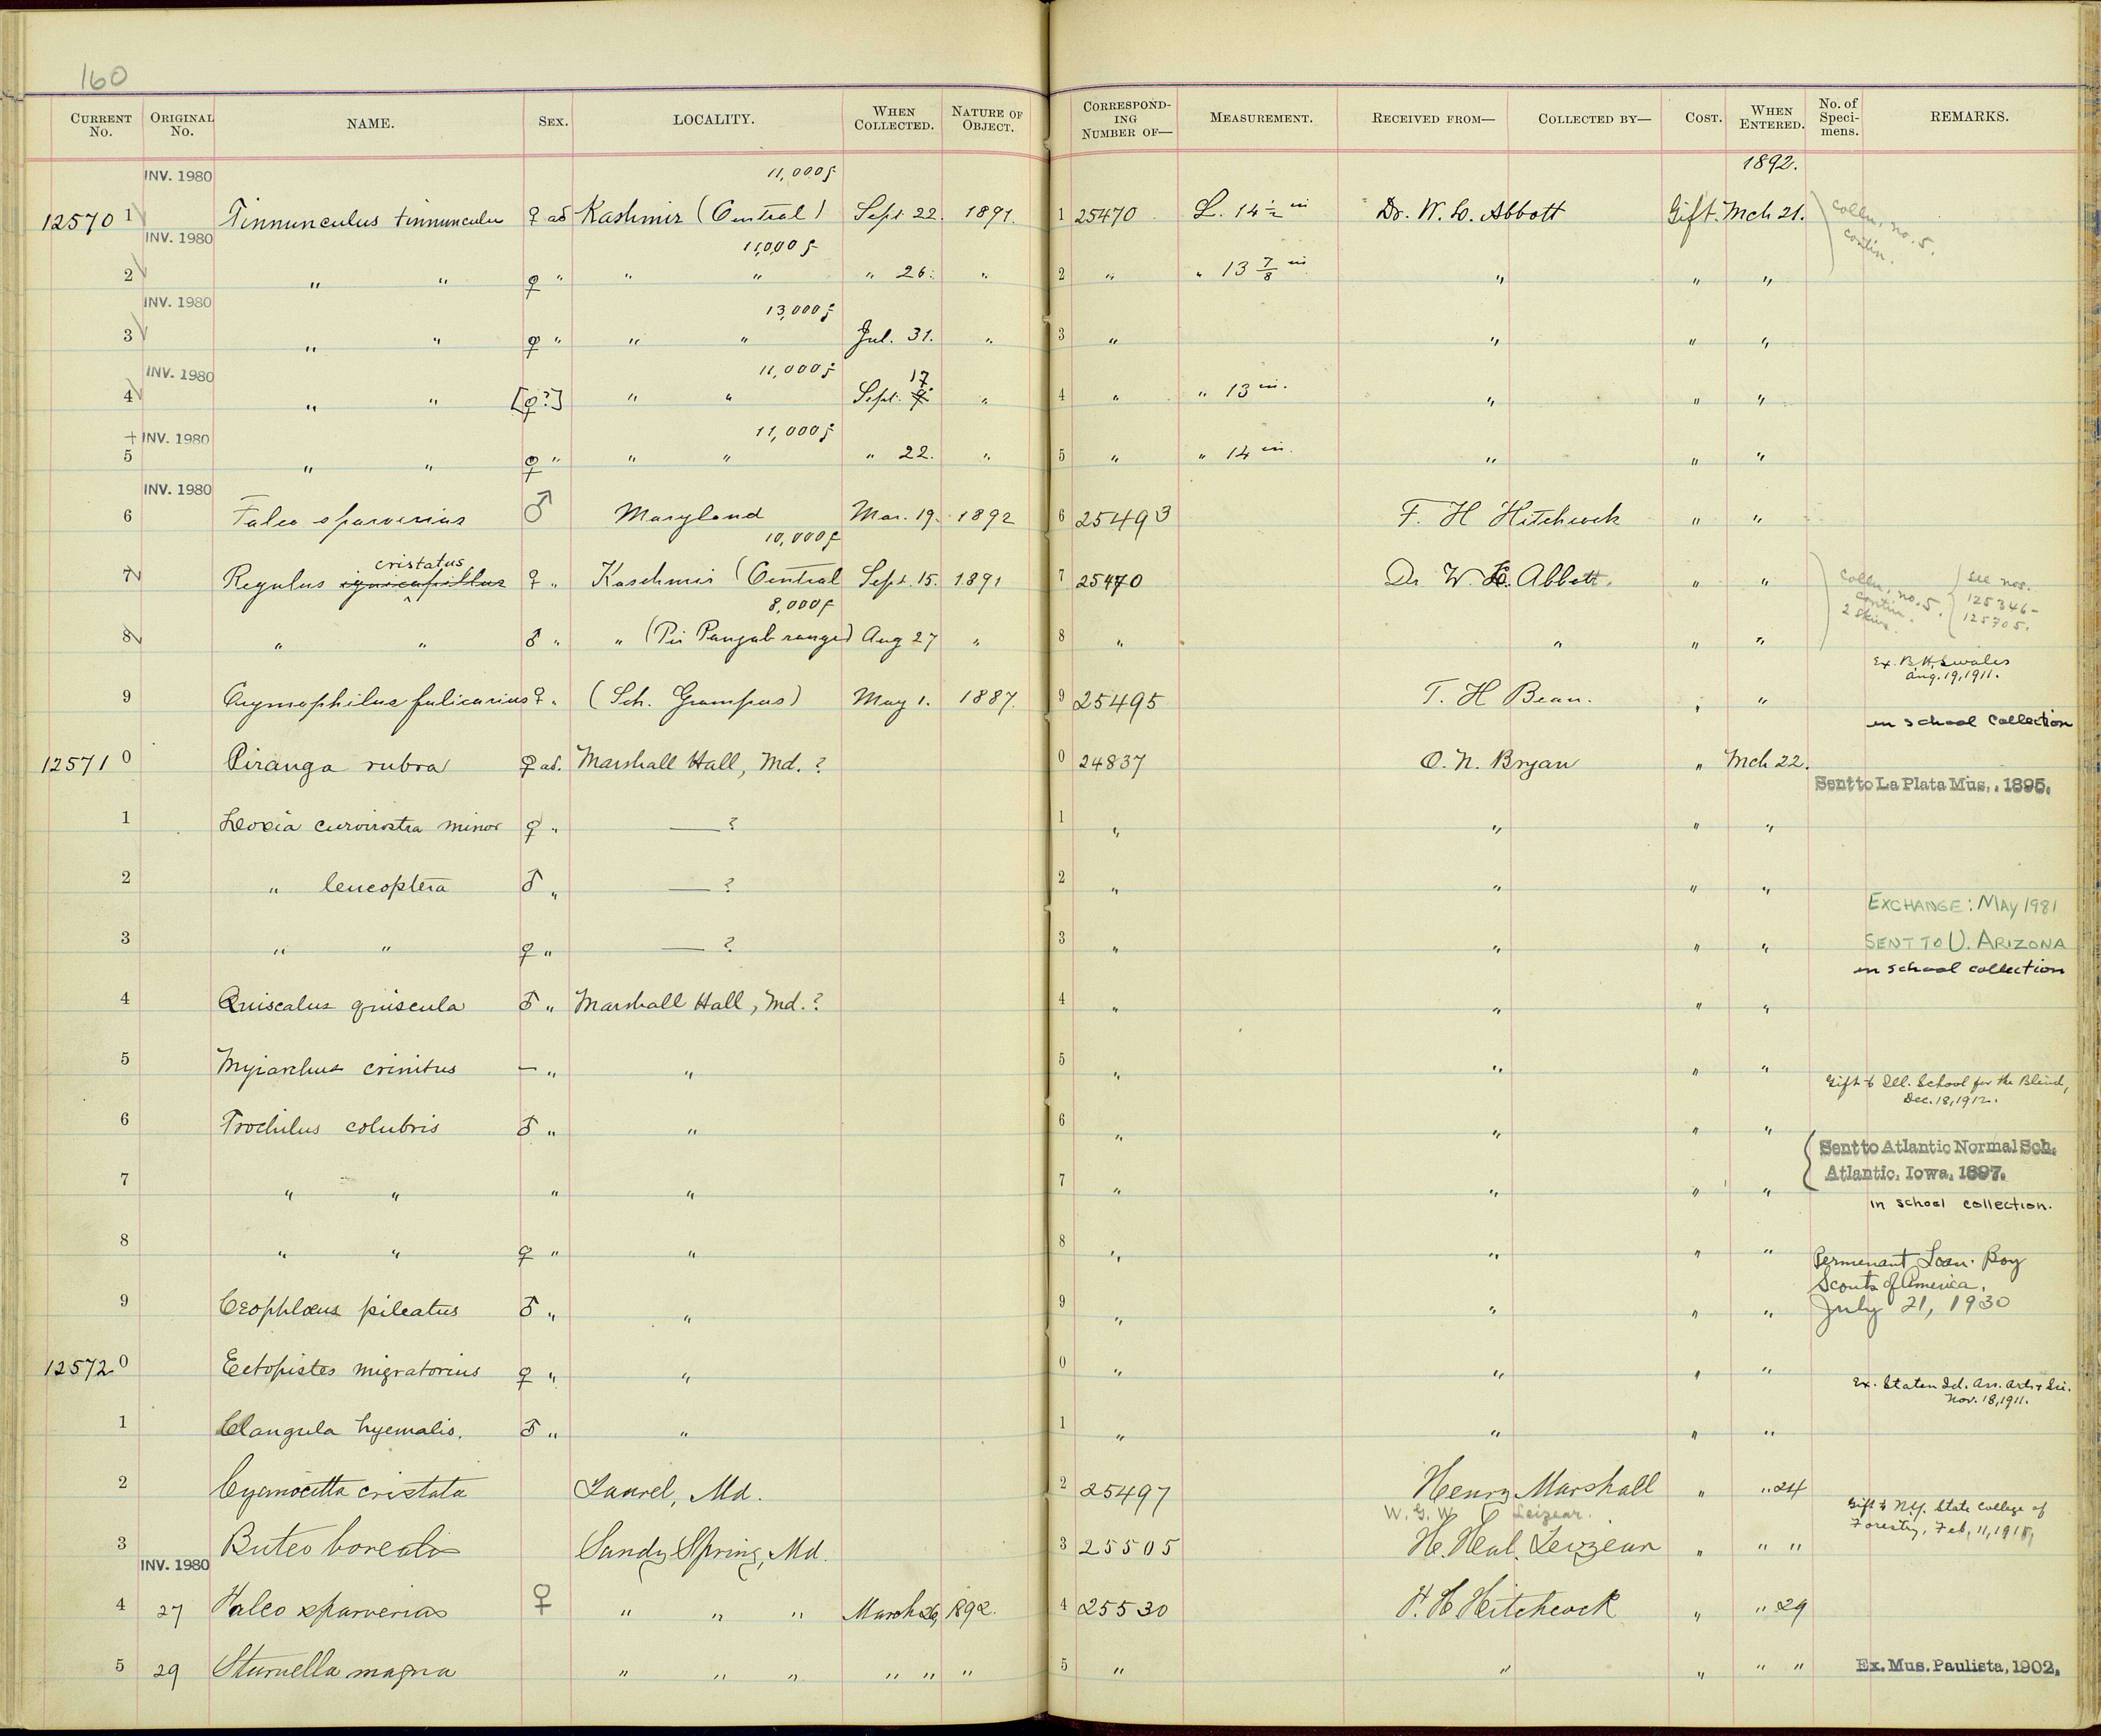 160
CURRENT No. ORIGINAL No. NAME. SEX. LOCALITY. WHEN COLLECTED. NATURE OF OBJECT. CORRESPONDING NUMBER OF— MEASUREMENT. RECEIVED FROM— COLLECTED BY— COST. WHEN ENTERED. No. of Specimens. REMARKS.
1892.
INV. 1980 11,000 f
12570 1 Tinnunculus tinnunculus ♀ ad Kashmir (Central) Sept. 22. 1891. 1 25470 L. 14 1/2 in Dr. W. L. Abbott Gift. Mch 21. Colln. no. 5. contin.
INV. 1980 11,000 f
2 " " ♀ " " " " 26. " 2 " " 13 7/8 in " " "
INV. 1980 13,000 f
3 " " ♀ " " " Jul. 31. " 3 " " " "
INV. 1980 11,000 f 17
4 " " [♀?] " " Sept. " 4 " " 13 in. " " "
+ INV. 1980 11,000 f
5 " " ♀ " " " " 22. " 5 " " 14 in. " " "
INV. 1980
6 Falco sparverius ♂ Maryland Mar. 19. 1892 6 25493 F. H Hitchcock " "
cristatus 10,000 f
7 Regulus ignicapillus ♀ " Kaschmir (Central Sept. 15. 1891 7 25470 Dr. W. L. Abbott. " " Colln. no. 5. contin. 2 skins. see nos. 125346- 125705.
8,000 f
8 " " ♂ " " (Pir Panjab range) Aug 27 " 8 " " " "
Ex. B. H. Swales Aug. 19, 1911.
9 Crymophilus fulicarius ♀ " (Sch. Grampus) May 1. 1887. 9 25495 T. H Bean. " "
in school collection
12571 0 Piranga rubra ♀ ad. Marshall Hall, Md. ? 0 24837 O. N. Bryan " Mch 22.
Sent to La Plata Mus., 1895.
1 Loxia curvirostra minor ♀ " — ? 1 " " " "
2 " leucoptera ♂ " — ? 2 " " " "
EXCHANGE: MAY 1981
3 " " ♀ " — ? 3 " " " " SENT TO U. ARIZONA
in school collection
4 Quiscalus quiscula ♂ " Marshall Hall, Md. ? 4 " " " "
5 Myiarchus crinitus – " " 5 " " " "
Gift to Ill. School for the Blind, Dec. 18, 1912.
6 Trochilus colubris ♂ " " 6 " " " "
Sent to Atlantic Normal Sch.
Atlantic, Iowa, 1897.
7 " " " " 7 " " " "
in school collection.
8 " " ♀ " " 8 " " " "
Permenant Loan. Boy
Scouts of America.
July 21, 1930
9 Ceophloeus pileatus ♂ " " 9 " " " "
12572 0 Ectopistes migratorius ♀ " " 0 " " " "
Ex. Staten Id. Ass. Arts + Sci. Nov. 18, 1911.
1 Clangula hyemalis. ♂ " " 1 " " " "
2 Cyanocitta cristata Laurel, Md. 2 25497 Henry Marshall " " 24
W. G. W. Leizear.
Gift to N.Y. State College of Forestry, Feb. 11, 1915,
3 Buteo borealis Sandy Spring, Md. 3 25505 H. Leizear " " "
INV. 1980
4 27 Falco sparverius ♀ " " " March 26, 1892. 4 25530 F. H Hitchcock " " 29
5 29 Sturnella magna " " " " " " 5 " " " " " Ex. Mus. Paulista, 1902.